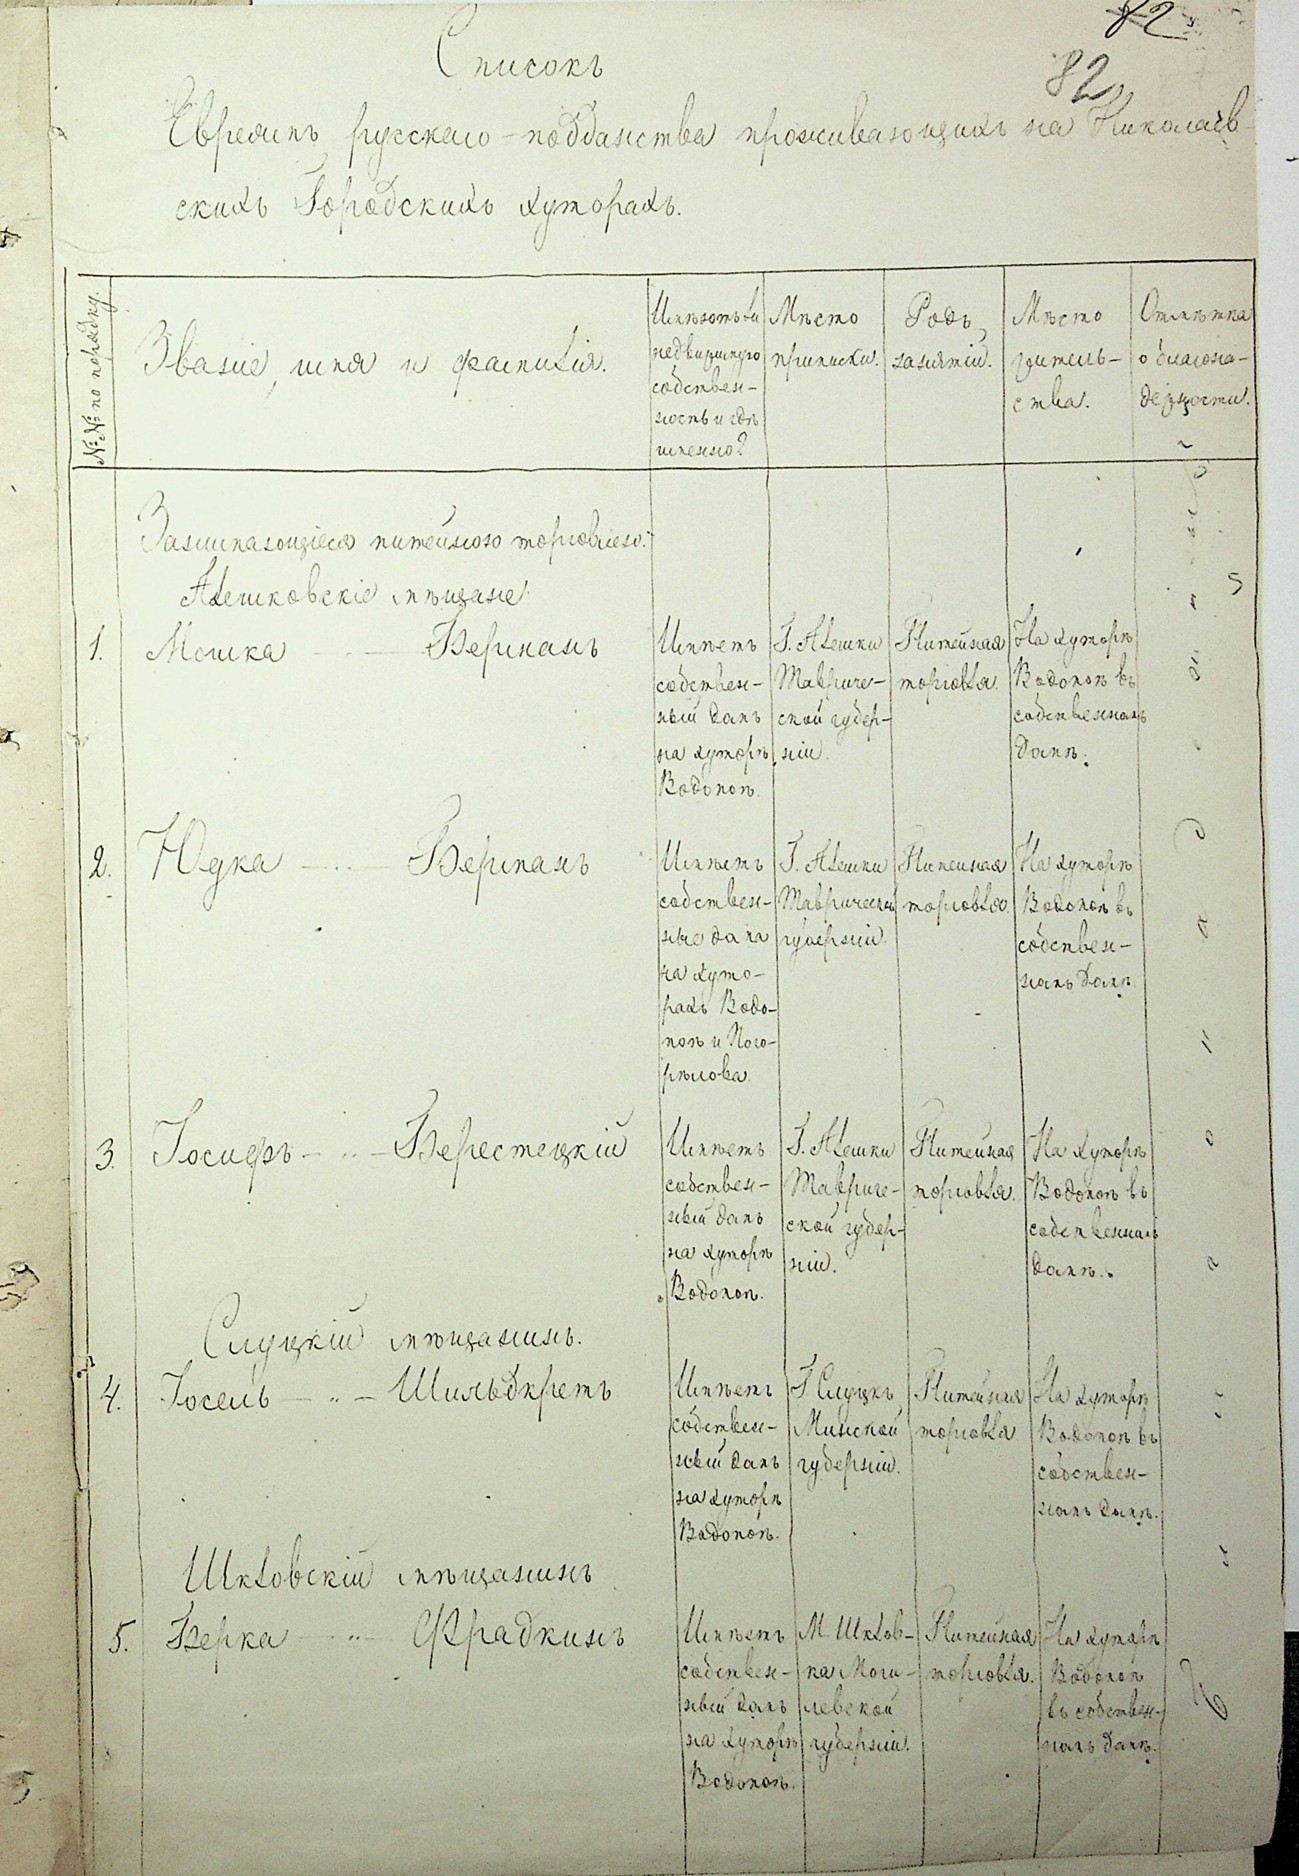 82
82
Списокъ
Евреямъ русскаго-подданства проживающихъ на Николаев-
скихъ Городскихъ хуторахъ.
№№ по порядку.
Званіе, имя и фамилія.
Имѣютъ ли
недвижимую
собствен-
ность и гдѣ
именно?
Мѣсто
приписки.
Родъ
занятій.
Мѣсто
житель-
ства.
Отмѣтка
о благона-
дежности.
Занимающіеся питейною торговлею:
Алешковскіе мѣщане
1.
Мошка
Берманъ
Имѣетъ
собствен-
ный домъ
на хуторѣ
Водопоѣ.
Г. Алешки
Тавриче-
ской губер-
ніи.
Питейная
торговля.
На хуторѣ
Водопоѣ въ
собственномъ
домѣ.
2.
Юдка
Берманъ
Имѣетъ
собствен-
ные дома
на хуто-
рахъ Водо-
поѣ и Пого-
рѣлова.
Г. Алешки
Таврической
губерніи.
Питейная
торговля.
На хуторѣ
Водопоѣ въ
собствен-
номъ домѣ.
3.
Іосифъ - " - Берестецкій
Имѣетъ
собствен-
ный домъ
на хуторѣ
Водопоѣ.
Г. Алешки
Тавриче-
ской губер-
ніи.
Питейная
торговля.
На хуторѣ
Водопоѣ въ
собственномъ
домѣ.
Слуцкій мѣщанинъ.
4.
Іосель - " - Шильдкретъ
Имѣетъ
собствен-
ный домъ
на хуторѣ
Водопоѣ.
Г. Слуцкъ
Минской
губерніи.
Питейная
торговля
На хуторѣ
Водопоѣ въ
собствен-
номъ домѣ.
Шкловскій мѣщанинъ
5.
Берка - " - Фрадкинъ
Имѣетъ
собствен-
ный домъ
на хуторѣ
Водопоѣ.
М. Шклов-
ка Моги-
левской
губерніи.
Питейная
торговля.
На хуторѣ
Водопоѣ
въ собствен-
номъ домѣ.